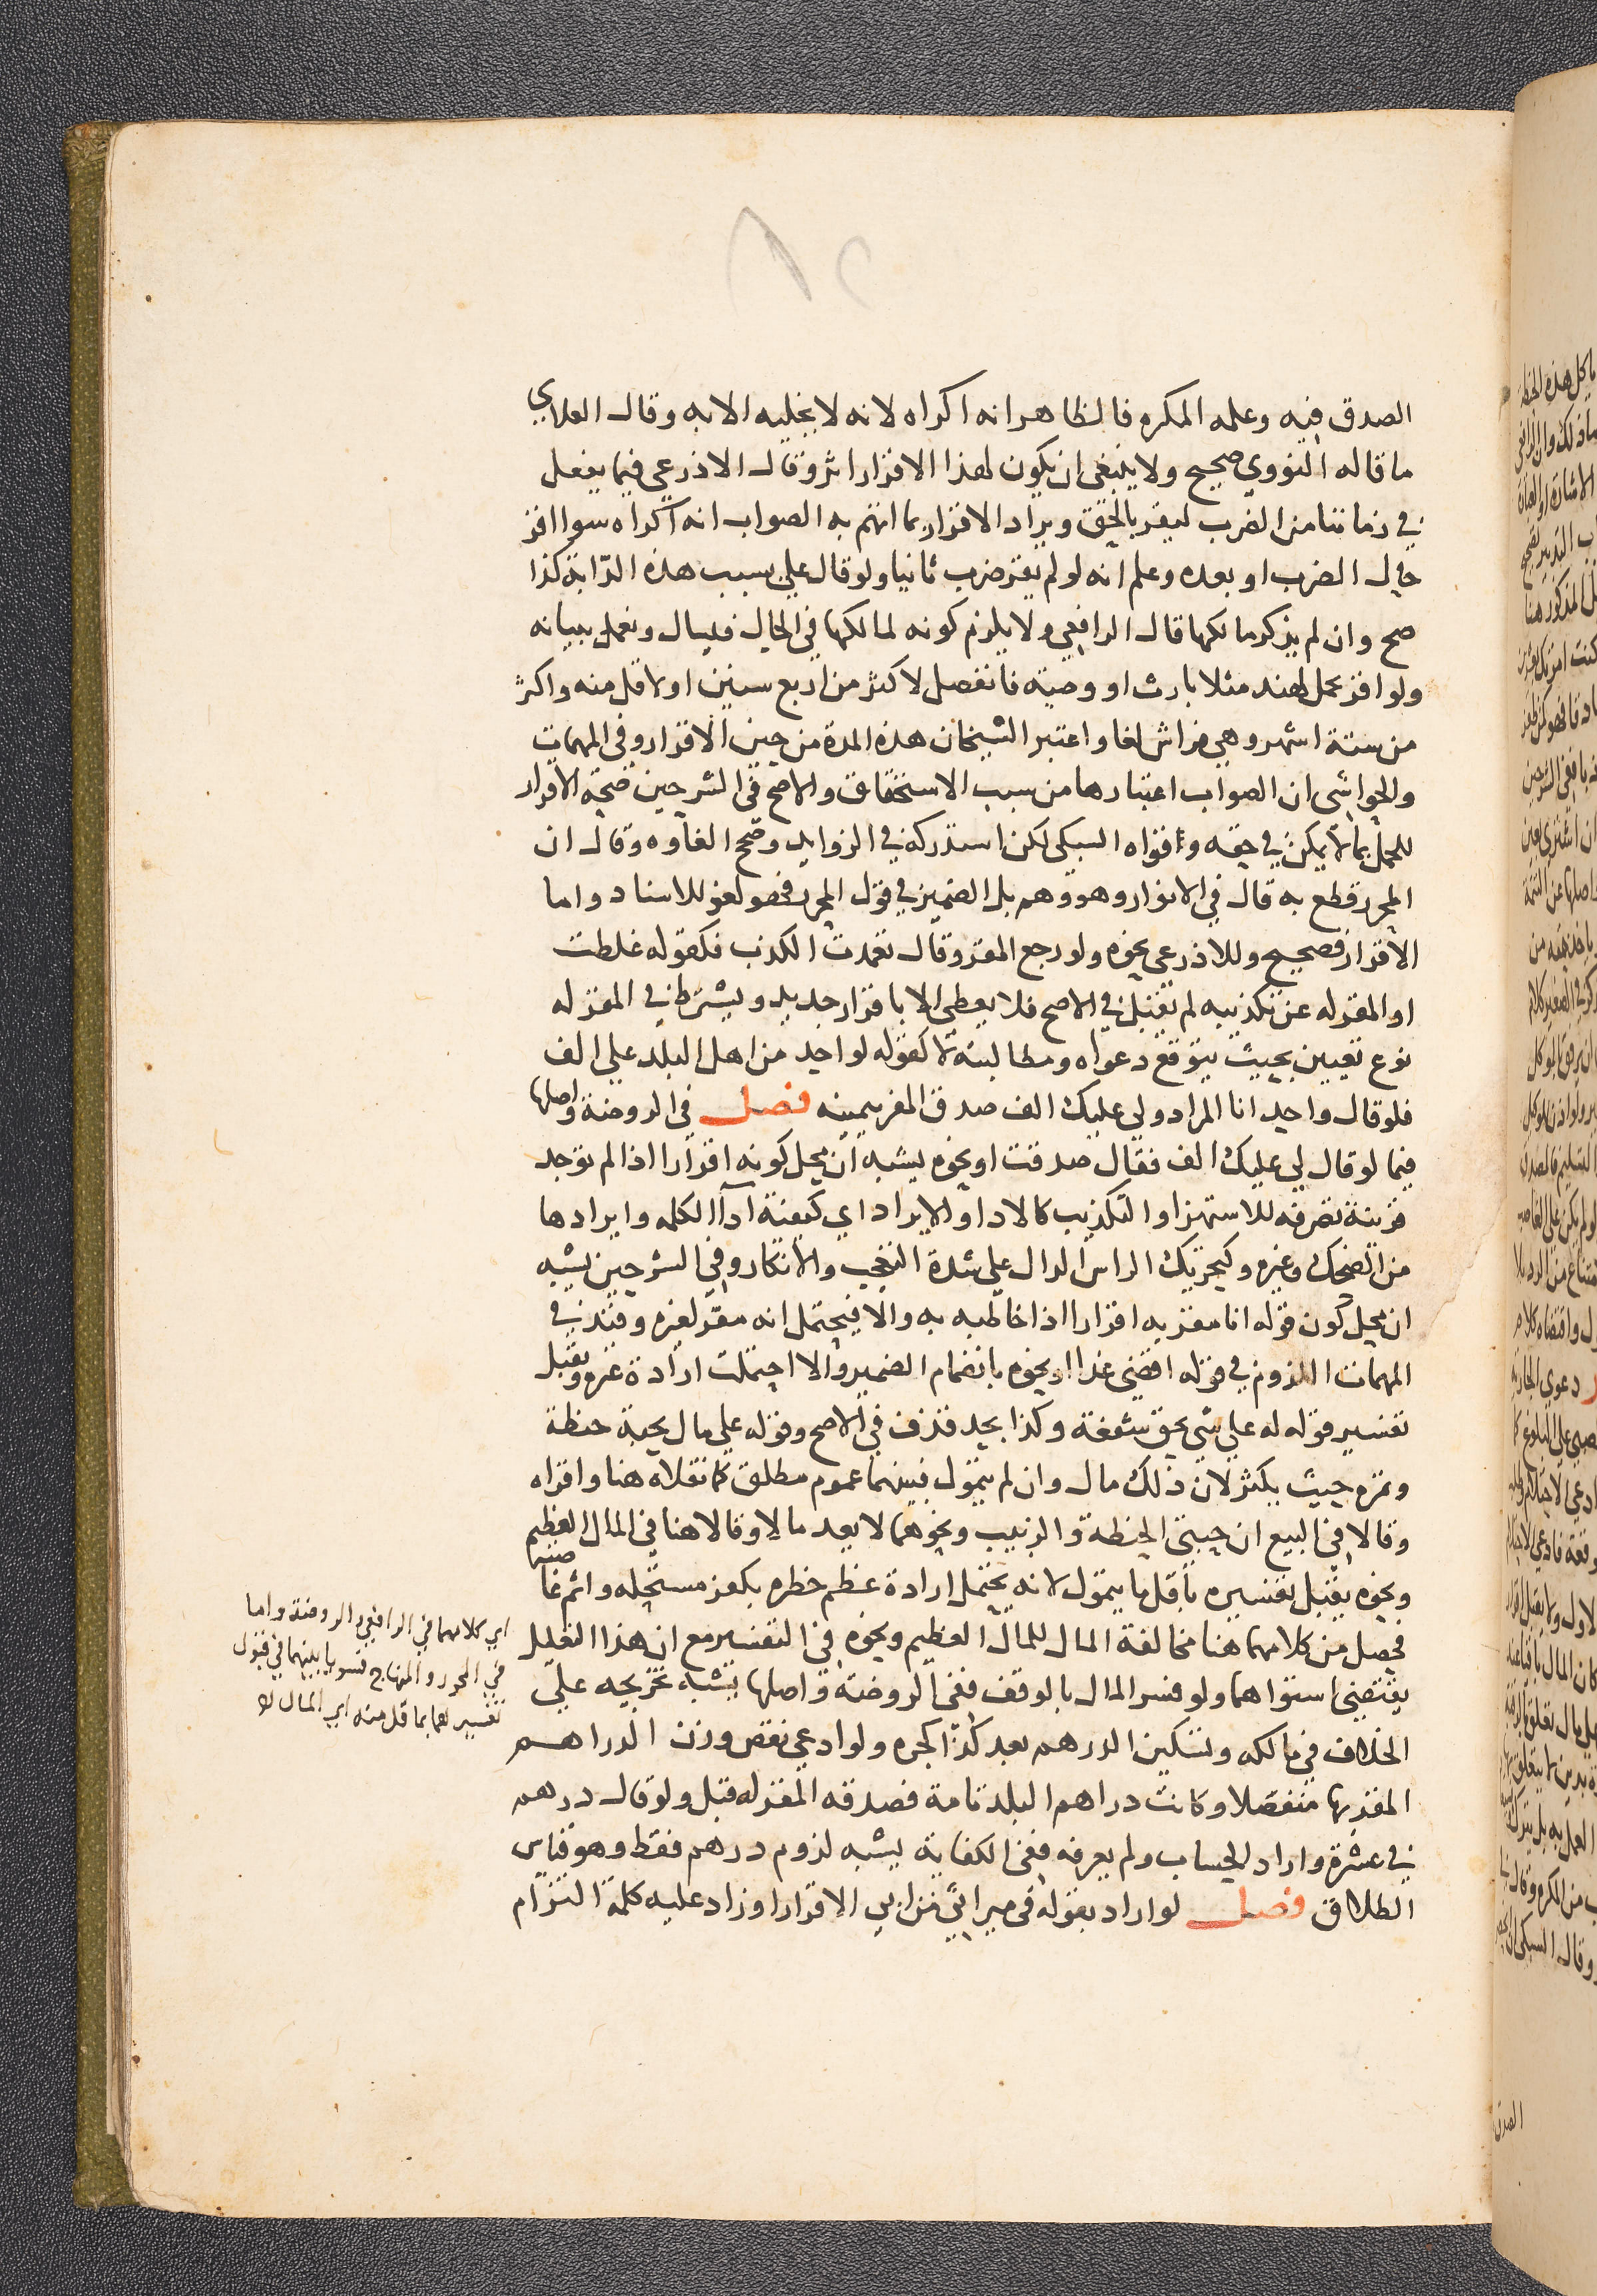 الصدق فيه وعلمه المكره فالظاهر انه اكراه لانه لا يخليه الا به وقال العلاي
ما قاله النووي صحيح ولا ينبغي ان يكون لهذا الاقرار اثر وقال الاذرعي فيما يفعل
في زماننا من الضرب ليقر بالحق ويراد الاقرار بما اتهم به الصواب انه اكراه سوا اقر
حال الضرب او بعده وعلم انه لو لم يقر ضرب ثانيا ولو قال علي بسبب هذه الدابة كذا
صح وان لم يذكر مالكها قال الرافعي ولا يلزم كونه لمالكها في الحال فيسال ويعمل ببيانه
ولو اقر بحمل لهند مثلا بارث او وصية فانفصل لاكثر من اربع سنين او لاقل منه واكثر
من ستة اشهر وهي فراش لغا واعتبر الشيخان هذه المدة من حين الاقرار وفي المهمات
والحواشي ان الصواب اعتبارها من سبب الاستحقاق والاصح في الشرحين صحة الاقرار
للحمل بما لا يمكن في حقه وقواه السبكي لكن استدركه في الزوايد وصحح الغاوه وقال ان
المحرر قطع به قال في الانوار وهو وهم بل الضمير في قول المحرر فهو لغو للاسناد واما
الاقرار فصحيح وللاذرعي نحوه ولو رجع المقر وقال تعمدت الكذب فكقوله غلطت
او المقر له عن تكذيبه لم تقبل في الاصح فلا يعطى الا باقرار جديد ويشترط في المقر له
نوع تعيين بحيث يتوقع دعواه ومطالبته لا كقوله لواحد من اهل البلد علي الف
فلو قال واحد انا المراد ولي عليك الف صدق المقر بيمينه فصل في الروضة واصلها
فيما لو قال لي عليك الف فقال صدقت او نحوه يشبه ان محل كونه اقرارا اذا لم توجد
قرينة تصرفه للاستهزا والتكذيب كالادا والايراد اي كيفية ادآ الكلمه وايرادها
من الضحك وغيره وكتحريك الراس الدال على شدة التعجب والانكار وفي الشرحين يشبه
ان محل كون قوله انا مقر به اقرارا اذا خاطبه به والا فيحتمل انه مقر لغيره وقيد في
المهمات اللزوم في قوله اقضي غدا او نحوه بانضمام الضمير والا احتملت ارادة غيره ويقبل
تفسير قوله له علي شي بحق شفعة وكذا بحد قذف في الاصح وقوله علي مال بحبة حنطة
وتمره حيث يكثر لان ذلك مال وان لم يتمول فبينهما عموم مطلق كما نقلاه هنا واقراه
وقالا في البيع ان حبتي الحنطة والزبيب ونحوهما لا يعد مالا وقالا هنا في المال العظيم
ونحوه يقبل تفسيره باقل ما يتمول لانه يحتمل ارادة عظم خطره بكفر مستحله واثم غاصبه
فحصل من كلامهما هنا مخالفة المال للمال العظيم ونحوه في التفسير مع ان هذا التعليل
يقتضي استواهما ولو فسر المال بالوقف ففي الروضة واصلها يشبه تخريجه على
الخلاف في مالكه وتسكين الدرهم بعد كذا كجره ولو ادعى نقص وزن الدراهم
المقر بها منفصلا وكانت دراهم البلد تامة فصدقه المقر له قبل ولو قال درهم
في عشرة واراد الحساب ولم يعرفه ففي الكفاية يشبه لزوم درهم فقط وهو قياس
الطلاق فصل لو اراد بقوله في ميراثي من ابي الاقرار او زاد عليه كلمة التزام
اي كلامهما في الرافعي والروضة واما
في المحرر والمنهاج فسويا بينهما في قبول
تفسيرهما بما قل منه اي المال